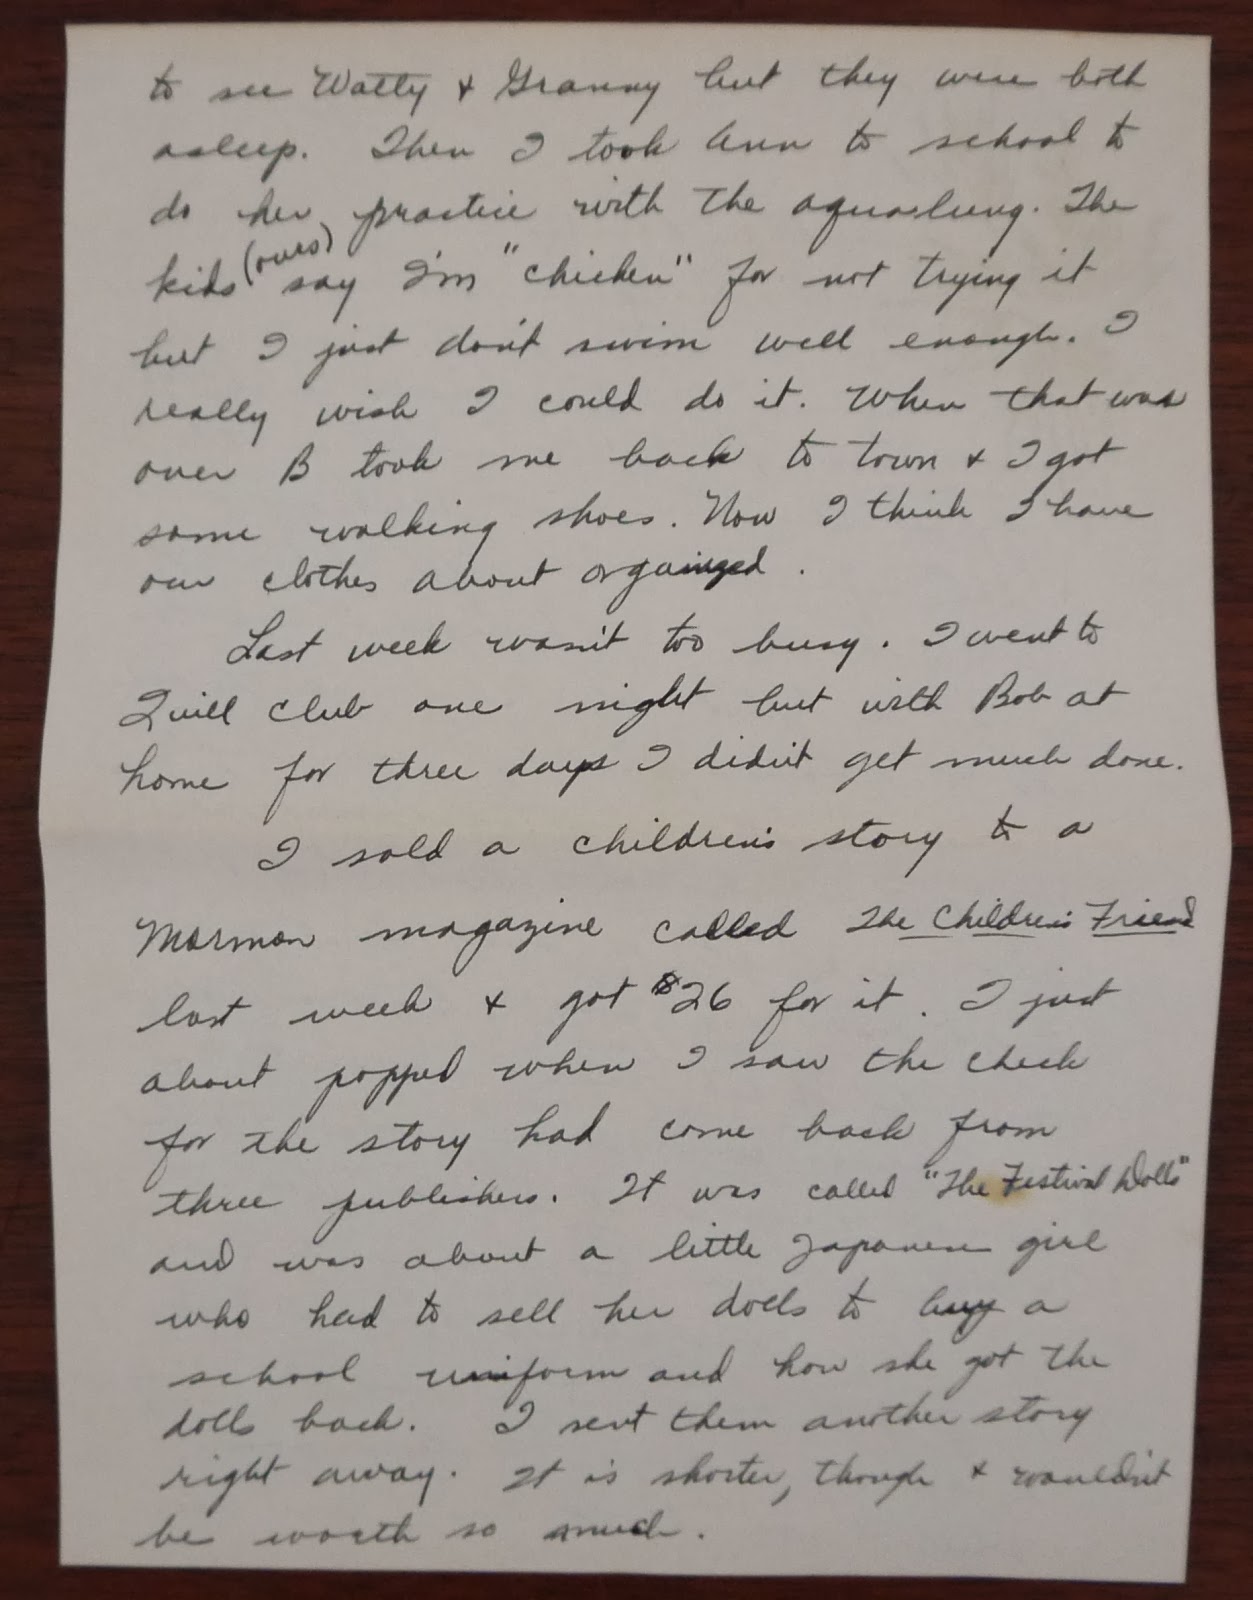 to see Watty & Granny but they were both
asleep. Then I took Ann to school to
do her practice with the aqua-lung. The
kids (ours) say I'm "chicken" for not trying it
but I just don't swim well enough. I
really wish I could do it. When that was
over B took me back to town & I got
some walking shoes. Now I think I have
our clothes about organized.
Last week wasn't too busy. I went to
Quill club one night but with Bob at
home for three days I didn't get much done.
I sold a children's story to a
Mormon magazine called The Children's Friend
last week & got $26 for it. I just
about popped when I saw the check
for the story had come back from
three publishers. It was called "The Festival Dolls"
and was about a little Japanese girl
who had to sell her dolls to buy a
school uniform and how she got the
dolls back. I sent them another story
right away. It is shorter, though & wouldn't
be worth so much.